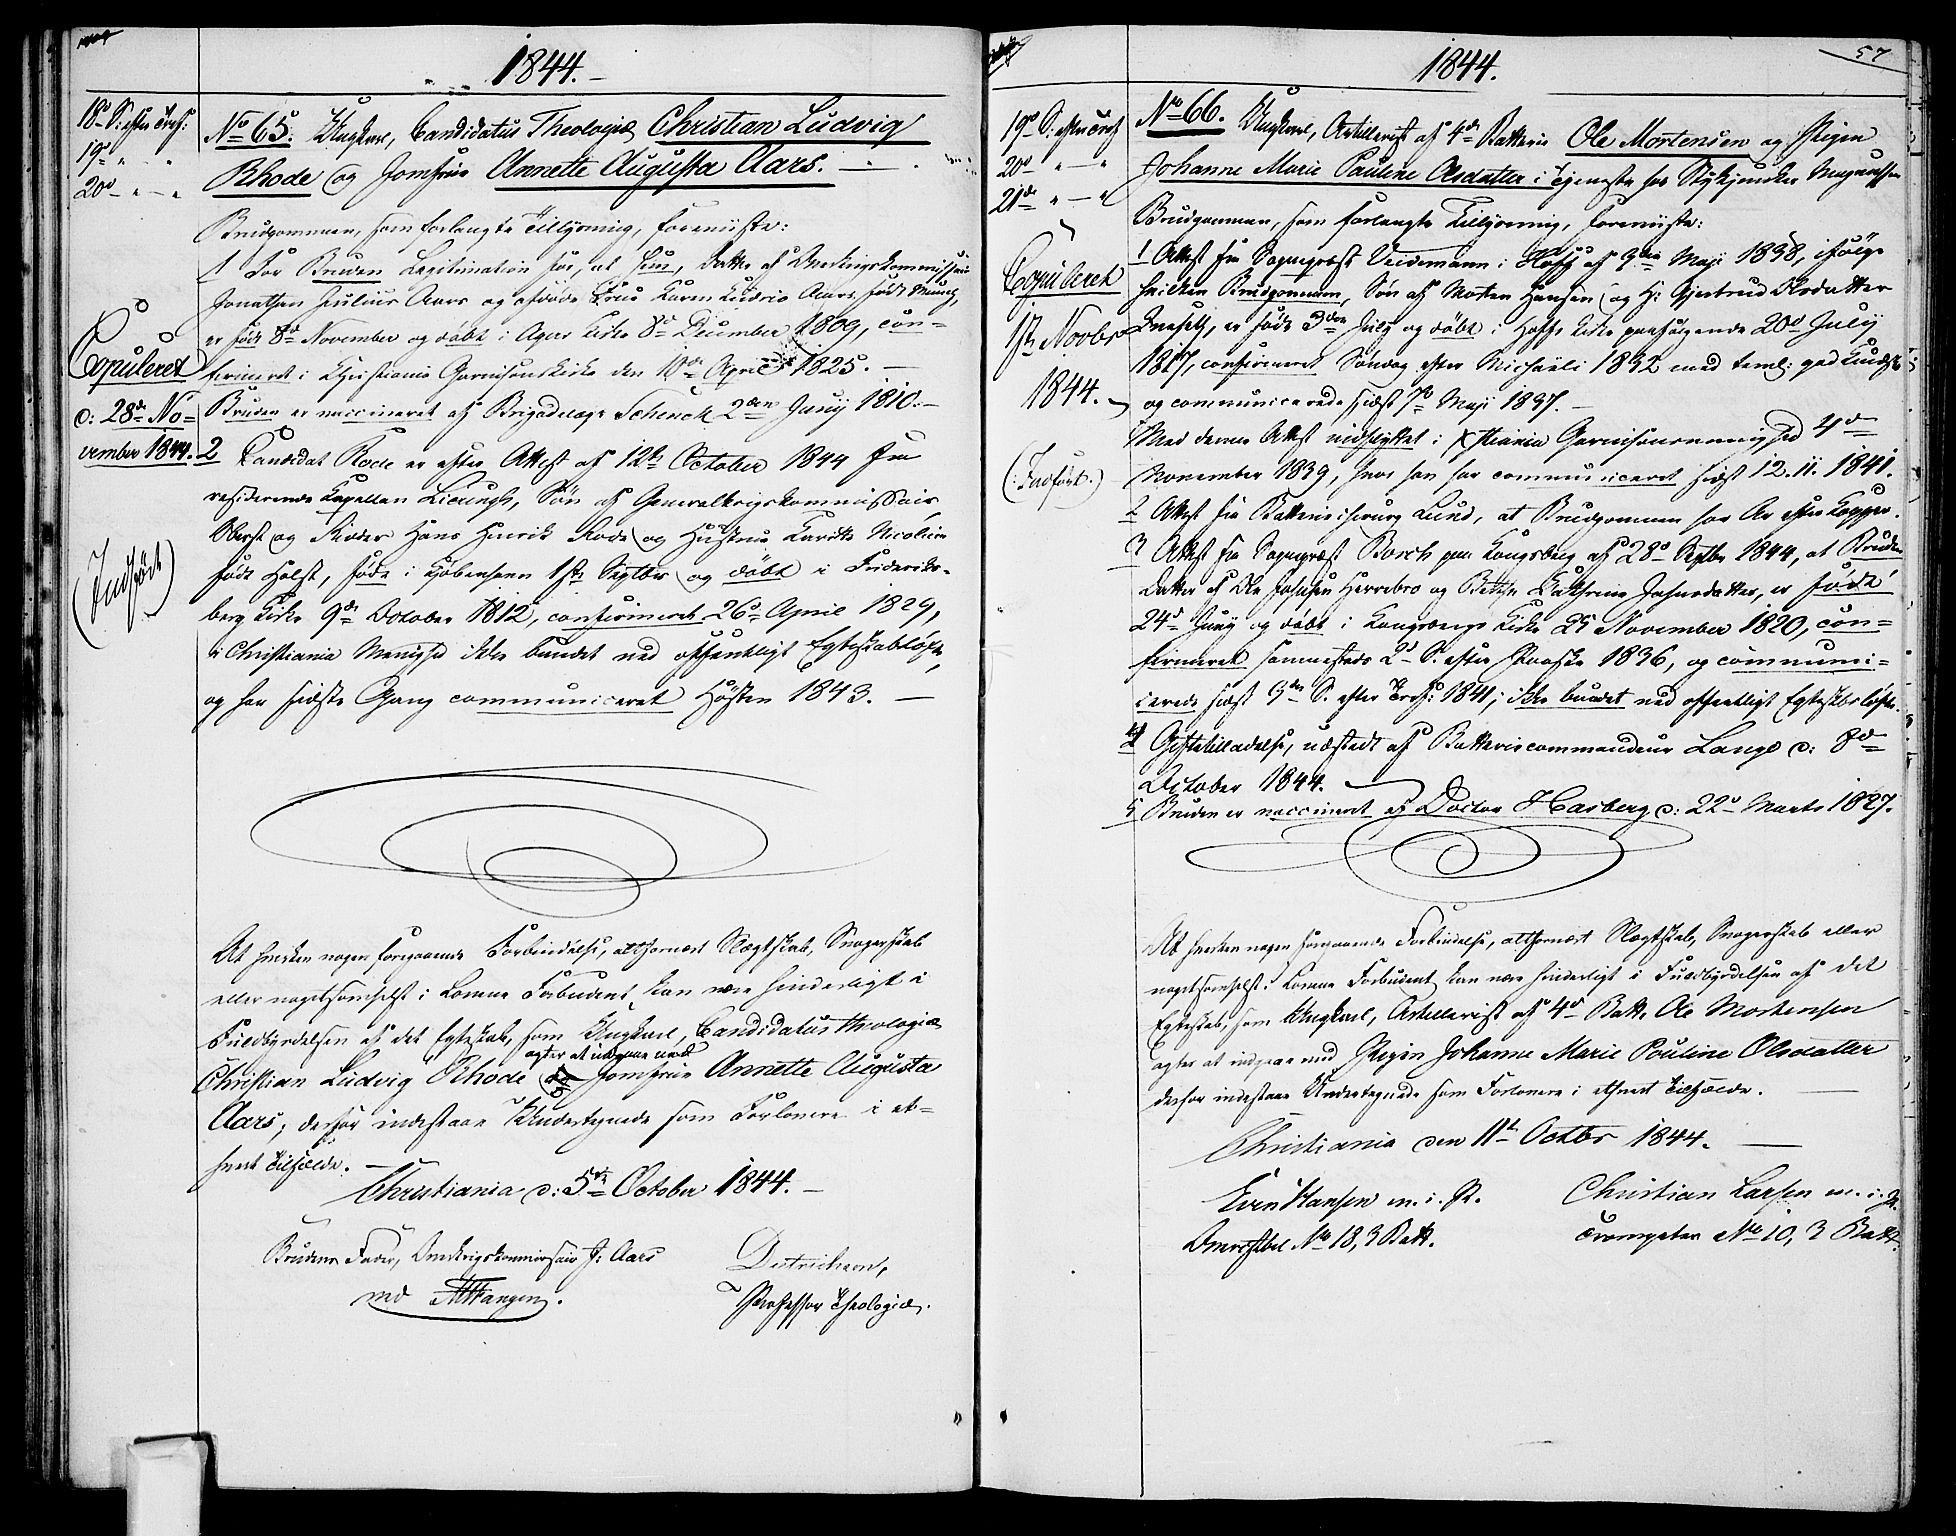 1844.
18de S: efter Tref:
19de " "
20de " — "
No 65. Ungkarl, Candidatus Theologiæ Christian Ludvig
Rhode og Jomfrue Annette Augusta Aars. —
Brudgommen, som forlangte Tillysning, foreviiste:
1 For Bruden Legitimation for, at hun, Datter af Overkrigskommissair
Jonathan Julius Aars og afdøde Frue Karen Ludvic Aars født Munch,
er født 8de November og døbt i Agers Kirke 8de December 1809, con-
firmeret i Christiania Garnisonskirke den 10de April 1825. —
Bruden er vaccineret af Brigadelæge Schenck 2den Juny 1810. —
2 Candidat Rode er efter Attest af 12te October 1844 fra
residerende Kapellan Lieungh, Søn af Generalkrigskommissair
Oberst og Ridder Hans Henrik Rode og Hustrue Karitte Nicoline
født Holst, føde i Kjøbenhavn 1ste Septbr og døbt i Frideriks-
berg Kirke 9de October 1812, confirmeret 26de April 1829,
i Christiania Menighed ikke bundet ved offentligt Egteskabsløfte,
og har sidste Gang communiceret Høsten 1843. —
Copuleret
d: 28de No-
vember 1844.
(Indført)
At hverken nogen foregaaende Forbindelse, altfornært Slægtskab, Svogerskab
eller nogetsomhelst i Lovene Forbudent kan være hinderligt i
Fuldbyrdelsen af det Egteskab, som Ungkarl, Candidatus theologiæ
agter at indgaae med
Christian Ludvig Rhode og Jomfrue Annette Augusta
Aars, derfor indestaae Undertegnede som Forlovere i et-
hvert Tilfælde. —
Christiania d: 5te October 1844. —
Brudens Fader, Overkrigskommissair J: Aars
ved
Dietrichson,
Professor Theologiæ.
57
1844.
19de S: efter Tref
20de " — "
21de " — "
No 66. Ungkarl, Artillerist af 4de Batterie Ole Mortensen og Pigen
Johanne Marie Pauline Olsdatter i Tjeneste hos Stykjunker Magnussen
Brudgommen, som forlangte Tillysning, foreviiste:
1 Attest fra Sognepræst Veidemann i Hoff af 9de Maji 1838, ifølge
hvilken Brudgommen, Søn af Morten Hansen og H: Gjertrud Olsdatter
er føde 3den July og døbt i Hoffs Kirke paafølgende 20de July
1817, confirmeret Søndag efter Michaëli 1832 med teml: god Kundsk:
og communicerede sidst 7de Maji 1837. —
Med denne Attest indflyttet i Xstiania Garnisonsmenighed 4de
November 1839, hvor han har communiceret sidst 12.11.1841.
2 Attest fra Batteriechirurg Lund, at Brudgommen har Ar efter Kopper.
3 Attest fra Sognepræst Borch paa Kongsberg af 28de Septbr 1844, at Bruden
Datter af Ole Johnsen Herrebro og Bethe Kathrine Johnsdatter, er født
24de Juny og døbt i Kongsbergs Kirke 25 November 1820, con-
firmeret sammesteds 2d S. efter Paaske 1836, og communi-
cerede sidst 9de S. efter Tref: 1841; ikke bundet ved offentligt Egteskbsløfte.
4 Giftetilladelse, udstedt af Batteriecommandeur Lange d: 8de
October 1844. —
5 Bruden er vaccineret af Doctor Hasberg d: 22de Marts 1827.
Copuleret
1ste Novbr
1844.
(: Indført.)
At hverken nogen foregaaende Forbindelse, altfornært Slægtskab, Svogerskab eller
nogetsomhelst i Lovene Forbudent kan være hinderligt i Fuldbyrdelsen af det
Egteskab, som Ungkarl, Artillerist af 4de Batt. Ole Mortensen
agter at indgaae med Pigen Johanne Marie Pauline Olsdatter
derfor indestaae Undertegnede som Forlovere i ethvert Tilfælde. —
Christiania den 11te Octbr 1844. —
Even Hansen m. i. P.
No 18, 3 Batt.
Christian Larsen m. i. P.
Trompeter No 10, 3 Batt.